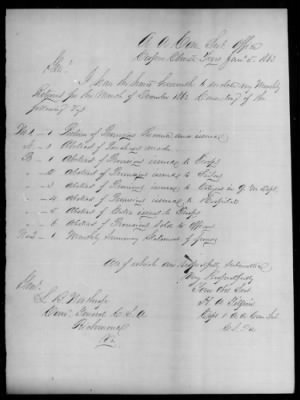 A. A. Com. Sub. Office
Corpus Christi, Texas Jan 5th 1863
Sir
I have the honor herewith to enclose my Monthly
Returns for the Month of December 1862 Consisting of the
following Viz
No 1 – 1 Return of Provisions Received and issued
A – 1 Abstract of Purchases made
B – 1 Abstract of Provisions issued to Troops
– 2 Abstract of Provisions issued to
– 3 Abstract of Provisions issued to Citizens in Q. M. Dept.
– 4 Abstract of Provisions issued to Hospital
– 5 Abstract of Extra issues to Troops
– 6 Abstract of Provisions Sold to Officers
No 2 – 1 Monthly Summary Statement of
All of which are Respectfully Submitted
Very Respectfully
Your Obt Svt
H. A.
Capt & A. A. Com. Sub.
C. S. A.
Genl.
L. B. Northrop
Com. General C. S. A.
Richmond
Va.